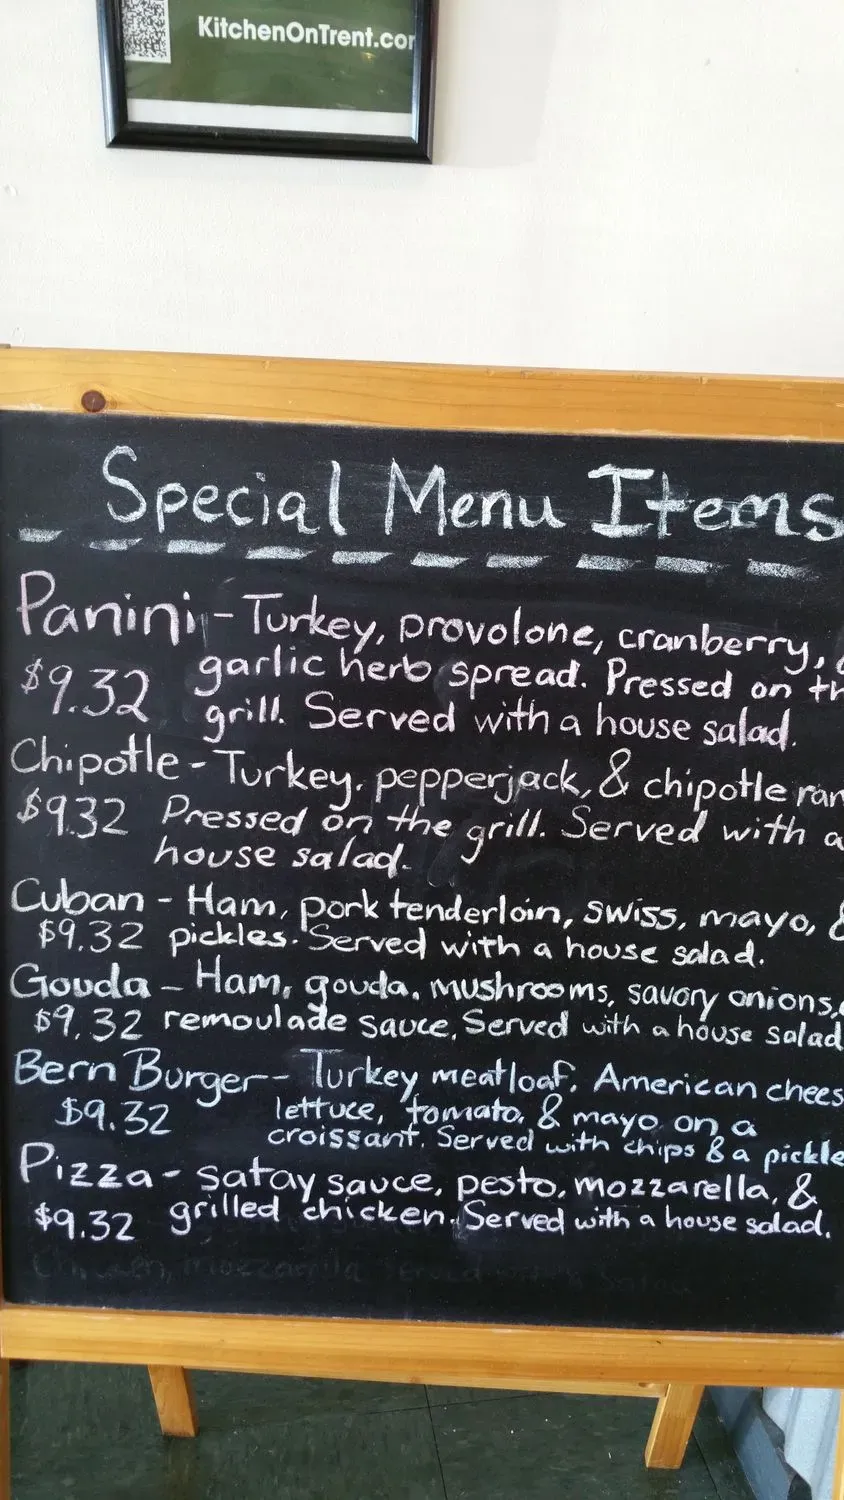 KitchenOnTrent.com
Special Menu Items
Panini - Turkey, provolone, cranberry, &
$9.32 garlic herb spread. Pressed on th
grill. Served with a house salad.
Chipotle - Turkey, pepperjack, & chipotle ran
$9.32 Pressed on the grill. Served with a
house salad.
Cuban - Ham, pork tenderloin, swiss, mayo, &
$9.32 pickles. Served with a house salad.
Gouda - Ham, gouda, mushrooms, savory onions,
$9.32 remoulade sauce. Served with a house salad
Bern Burger - Turkey meatloaf, American chees
$9.32 lettuce, tomato, & mayo on a
croissant. Served with chips & a pickle
Pizza - satay sauce, pesto, mozzarella, &
$9.32 grilled chicken. Served with a house salad.